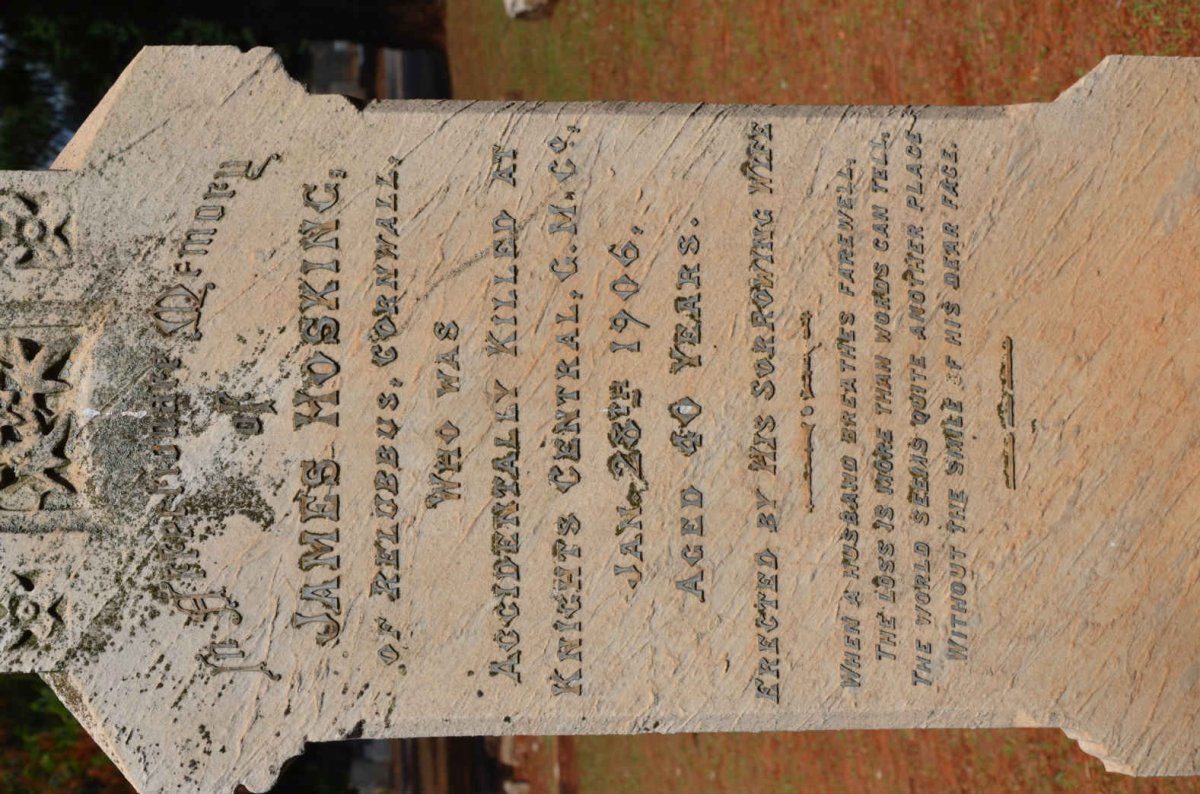 In Affectionate Memory
of
JAMES HOSKING,
OF RELUBBUS, CORNWALL.
WHO WAS
ACCIDENTALLY KILLED AT
KNIGHTS CENTRAL, G.M. Co,
JAN. 28TH 1906,
AGED 40 YEARS.
ERECTED BY HIS SORROWING WIFE
WHEN A HUSBAND BREATHES FAREWELL.
THE LOSS IS MORE THAN WORDS CAN TELL,
THE WORLD SEEMS QUITE ANOTHER PLACE
WITHOUT THE SMILE OF HIS DEAR FACE.